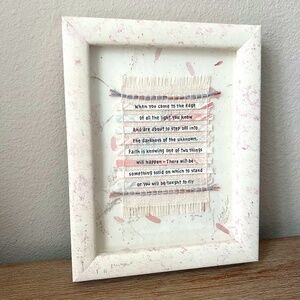 When you come to the Edge
of all the light you know
And are about to step off into
the darkness of the unknown,
Faith is knowing one of two things
will happen - There will be
something solid on which to stand
or you will be taught to fly